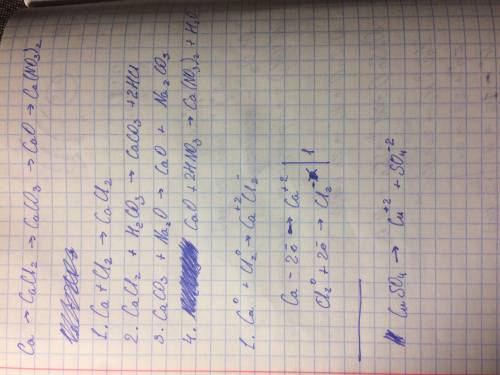 Ca → CaCl2 → CaCO3 → CaO → Ca(NO3)2
1. Ca + Cl2 → CaCl2
2. CaCl2 + H2CO3 → CaCO3 + 2HCl
3. CaCO3 + Na2O → CaO + Na2CO3
4. CaO + 2HNO3 → Ca(NO3)2 + H2O
1. Ca⁰ + Cl2⁰ → Ca⁺² Cl2⁻
Ca − 2ē → Ca⁺² | 1
Cl2⁰ + 2ē → Cl2⁻
CuSO4 → Cu⁺² + SO4⁻²